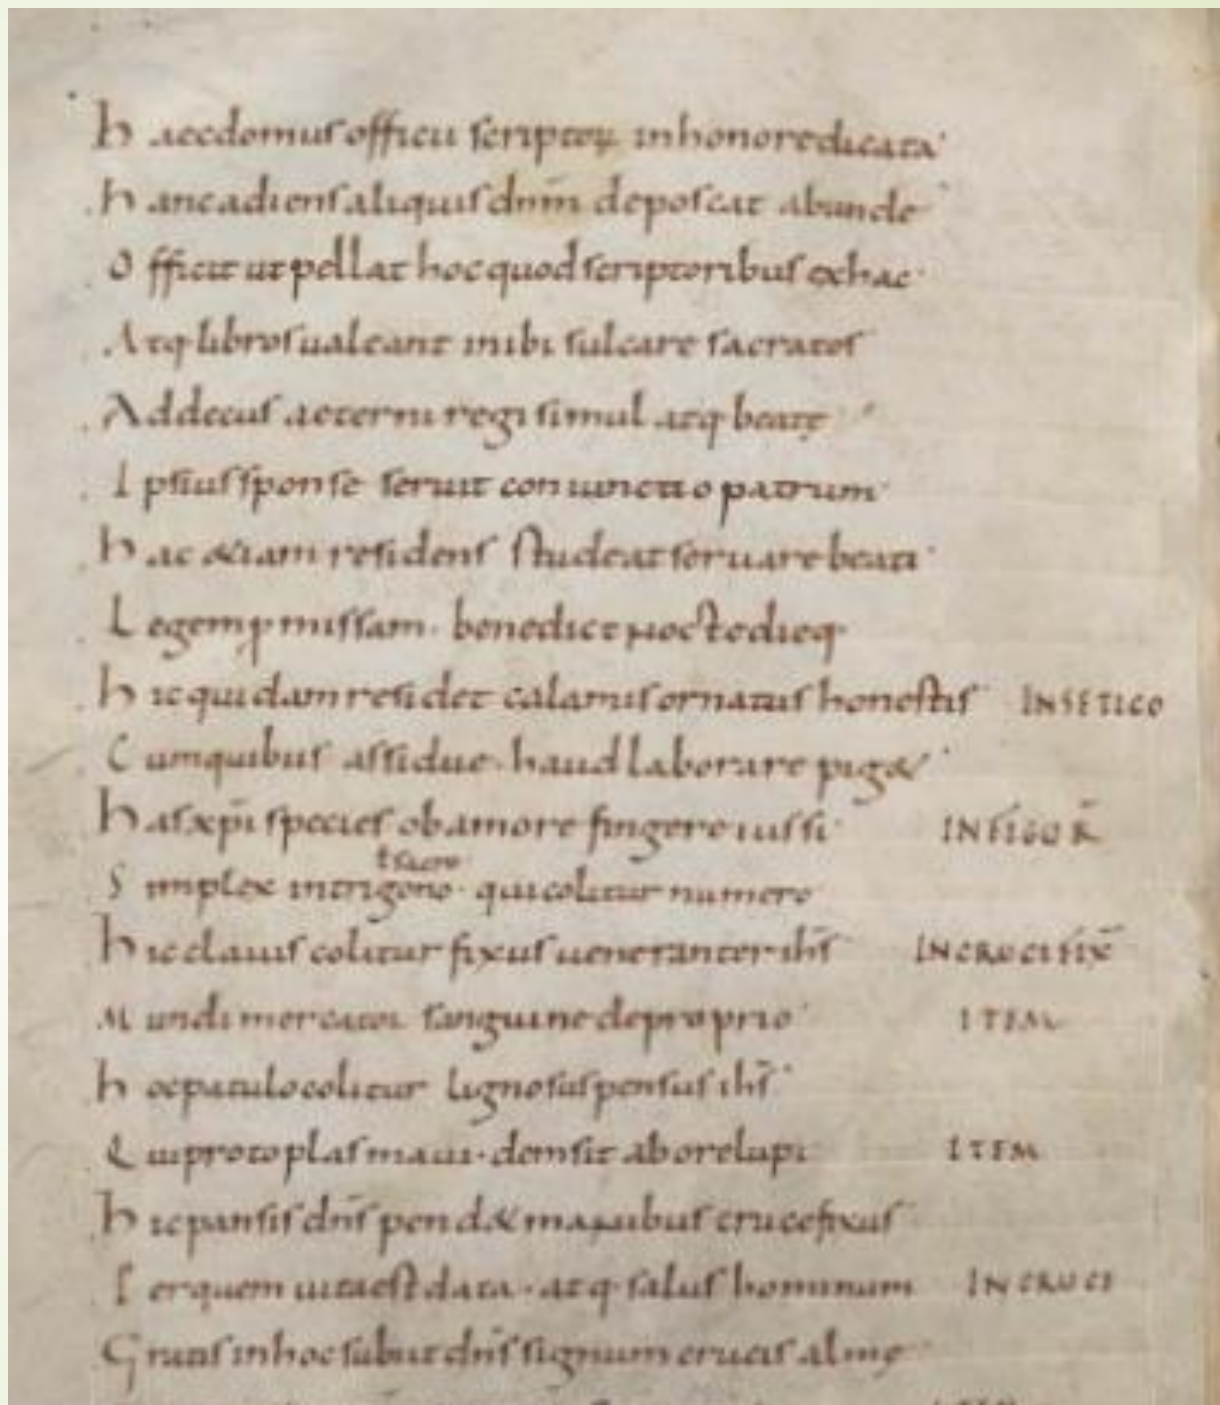 Haec domus officii scriptoꝝ in honore dicata
Hanc adiens aliquis dn̄m deposcat abunde
Officit ut pellat hoc quod scriptoribus ex hac
Atq· libros ualeant inibi sulcare sacratos
Ad decus aeterni regi simul atq· beatę
Ipsius sponse seruit coniunctio patrum
Hac &iam residens studeat seruare beati
Legem ꝓmissam· benedicti nocte dieq·
Hic quidam residet calamis ornatus honestis INSETICO
Cum quibus assidue· haud laborare pig&
Has xp̄i species ob amore fingere iussi INFIGOR̄
ł sacro
Simplex in trigono· qui colitur numero
Hic clauis colitur fixus ueneranter ih̄s INCRUCIFIX̄
Mundi mercator sanguine de proprio ITEM
Hoc patulo colitur ligno suspensus ih̄s
Qui protoplasmaui· demsit ab ore lupi ITEM
Hic pansis dn̄s pend& manibus cruce fixus
Per quem uita est data· atq· salus hominum INCRUCI
Gratis in hoc subiit dn̄s signum crucis almę